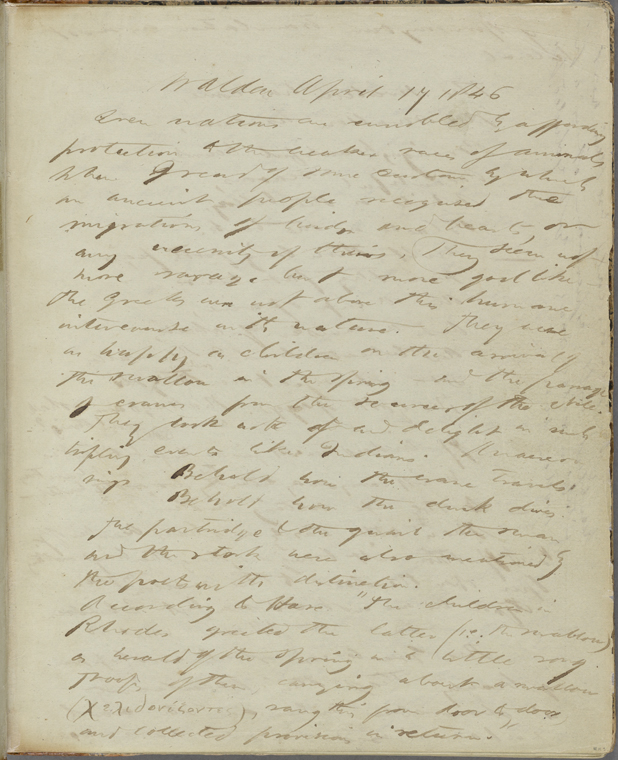 Walden April 17 1846
Even nations are ennobled by affording
protection to the weaker races of animals
When I read of some custom by which
an ancient people recognised the
migrations of birds and beasts, or
any necessity of theirs, They seem not
more savage but more god like
the Greeks were not above this humane
intercourse with nature. They were
as happy as children on the arrival of
the swallow in the spring and the passage
of cranes from the sources of the Nile
They took note of and delight in such
trifling events like Indians. Anacreon
sings Behold how the crane travels.
Behold how the duck dives.
The partridge & the quail the swan
and the stork were also mentioned by
the poets with distinction.
According to Hase "The children in
Rhodes greeted the latter (i.e. the swallow)
as herald of the spring in a little song
Troops of them carrying about a swallow
(χελιδονίζοντες) sang this from door to door
and collected provisions in return."